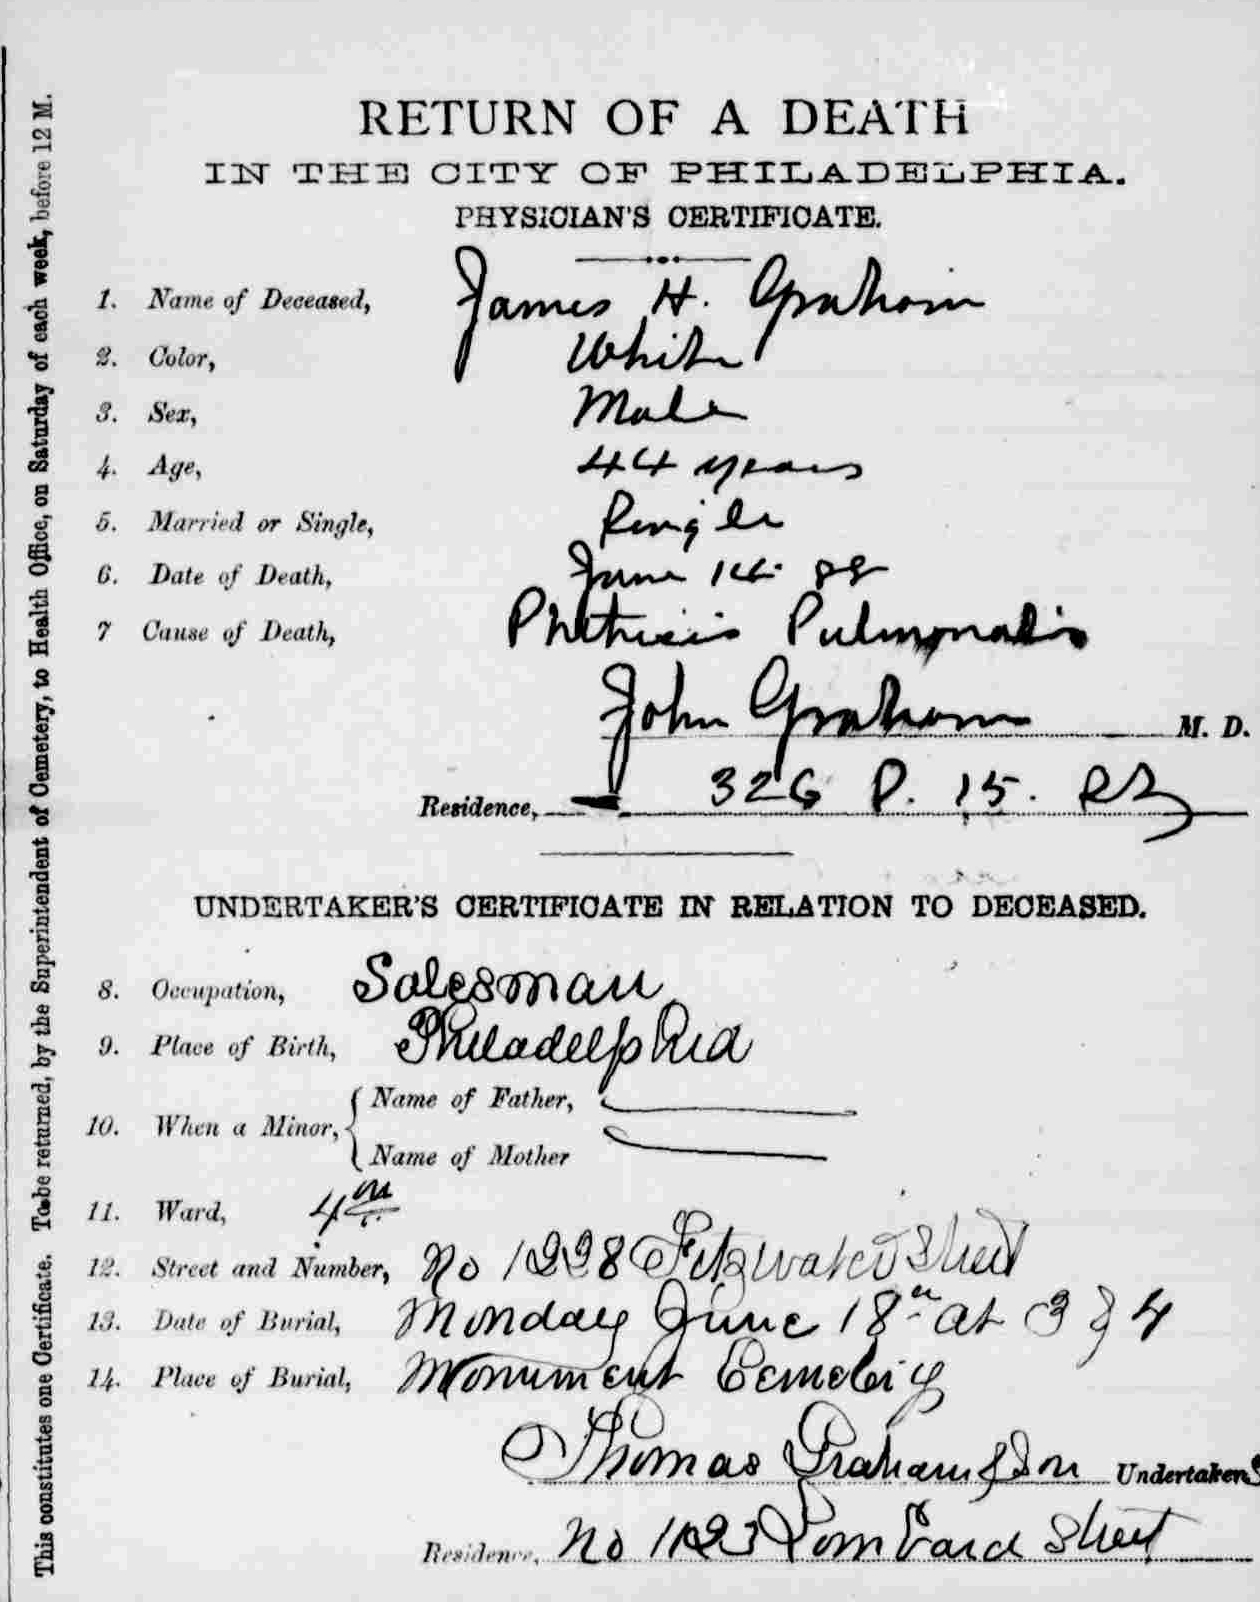 RETURN OF A DEATH
IN THE CITY OF PHILADELPHIA.
PHYSICIAN'S CERTIFICATE.
1. Name of Deceased, James H. Graham
2. Color, White
3. Sex, Male
4. Age, 44 years
5. Married or Single, Single
6. Date of Death, June 14. 88
7 Cause of Death, Phthisis Pulmonalis
John Graham M. D.
Residence, 326 S. 15.
UNDERTAKER'S CERTIFICATE IN RELATION TO DECEASED.
8. Occupation, Salesman
9. Place of Birth, Philadelphia
10. When a Minor, { Name of Father,
Name of Mother
11. Ward, 4th
12. Street and Number, No 1228 Fitzwater Street
13. Date of Burial, Monday June 18th at 3 & 4
14. Place of Burial, Monument Cemetery
Thomas Graham & Son Undertakers
Residence, No Lombard Street
This constitutes one Certificate. To be returned, by the Superintendent of Cemetery, to Health Office, on Saturday of each week, before 12 M.